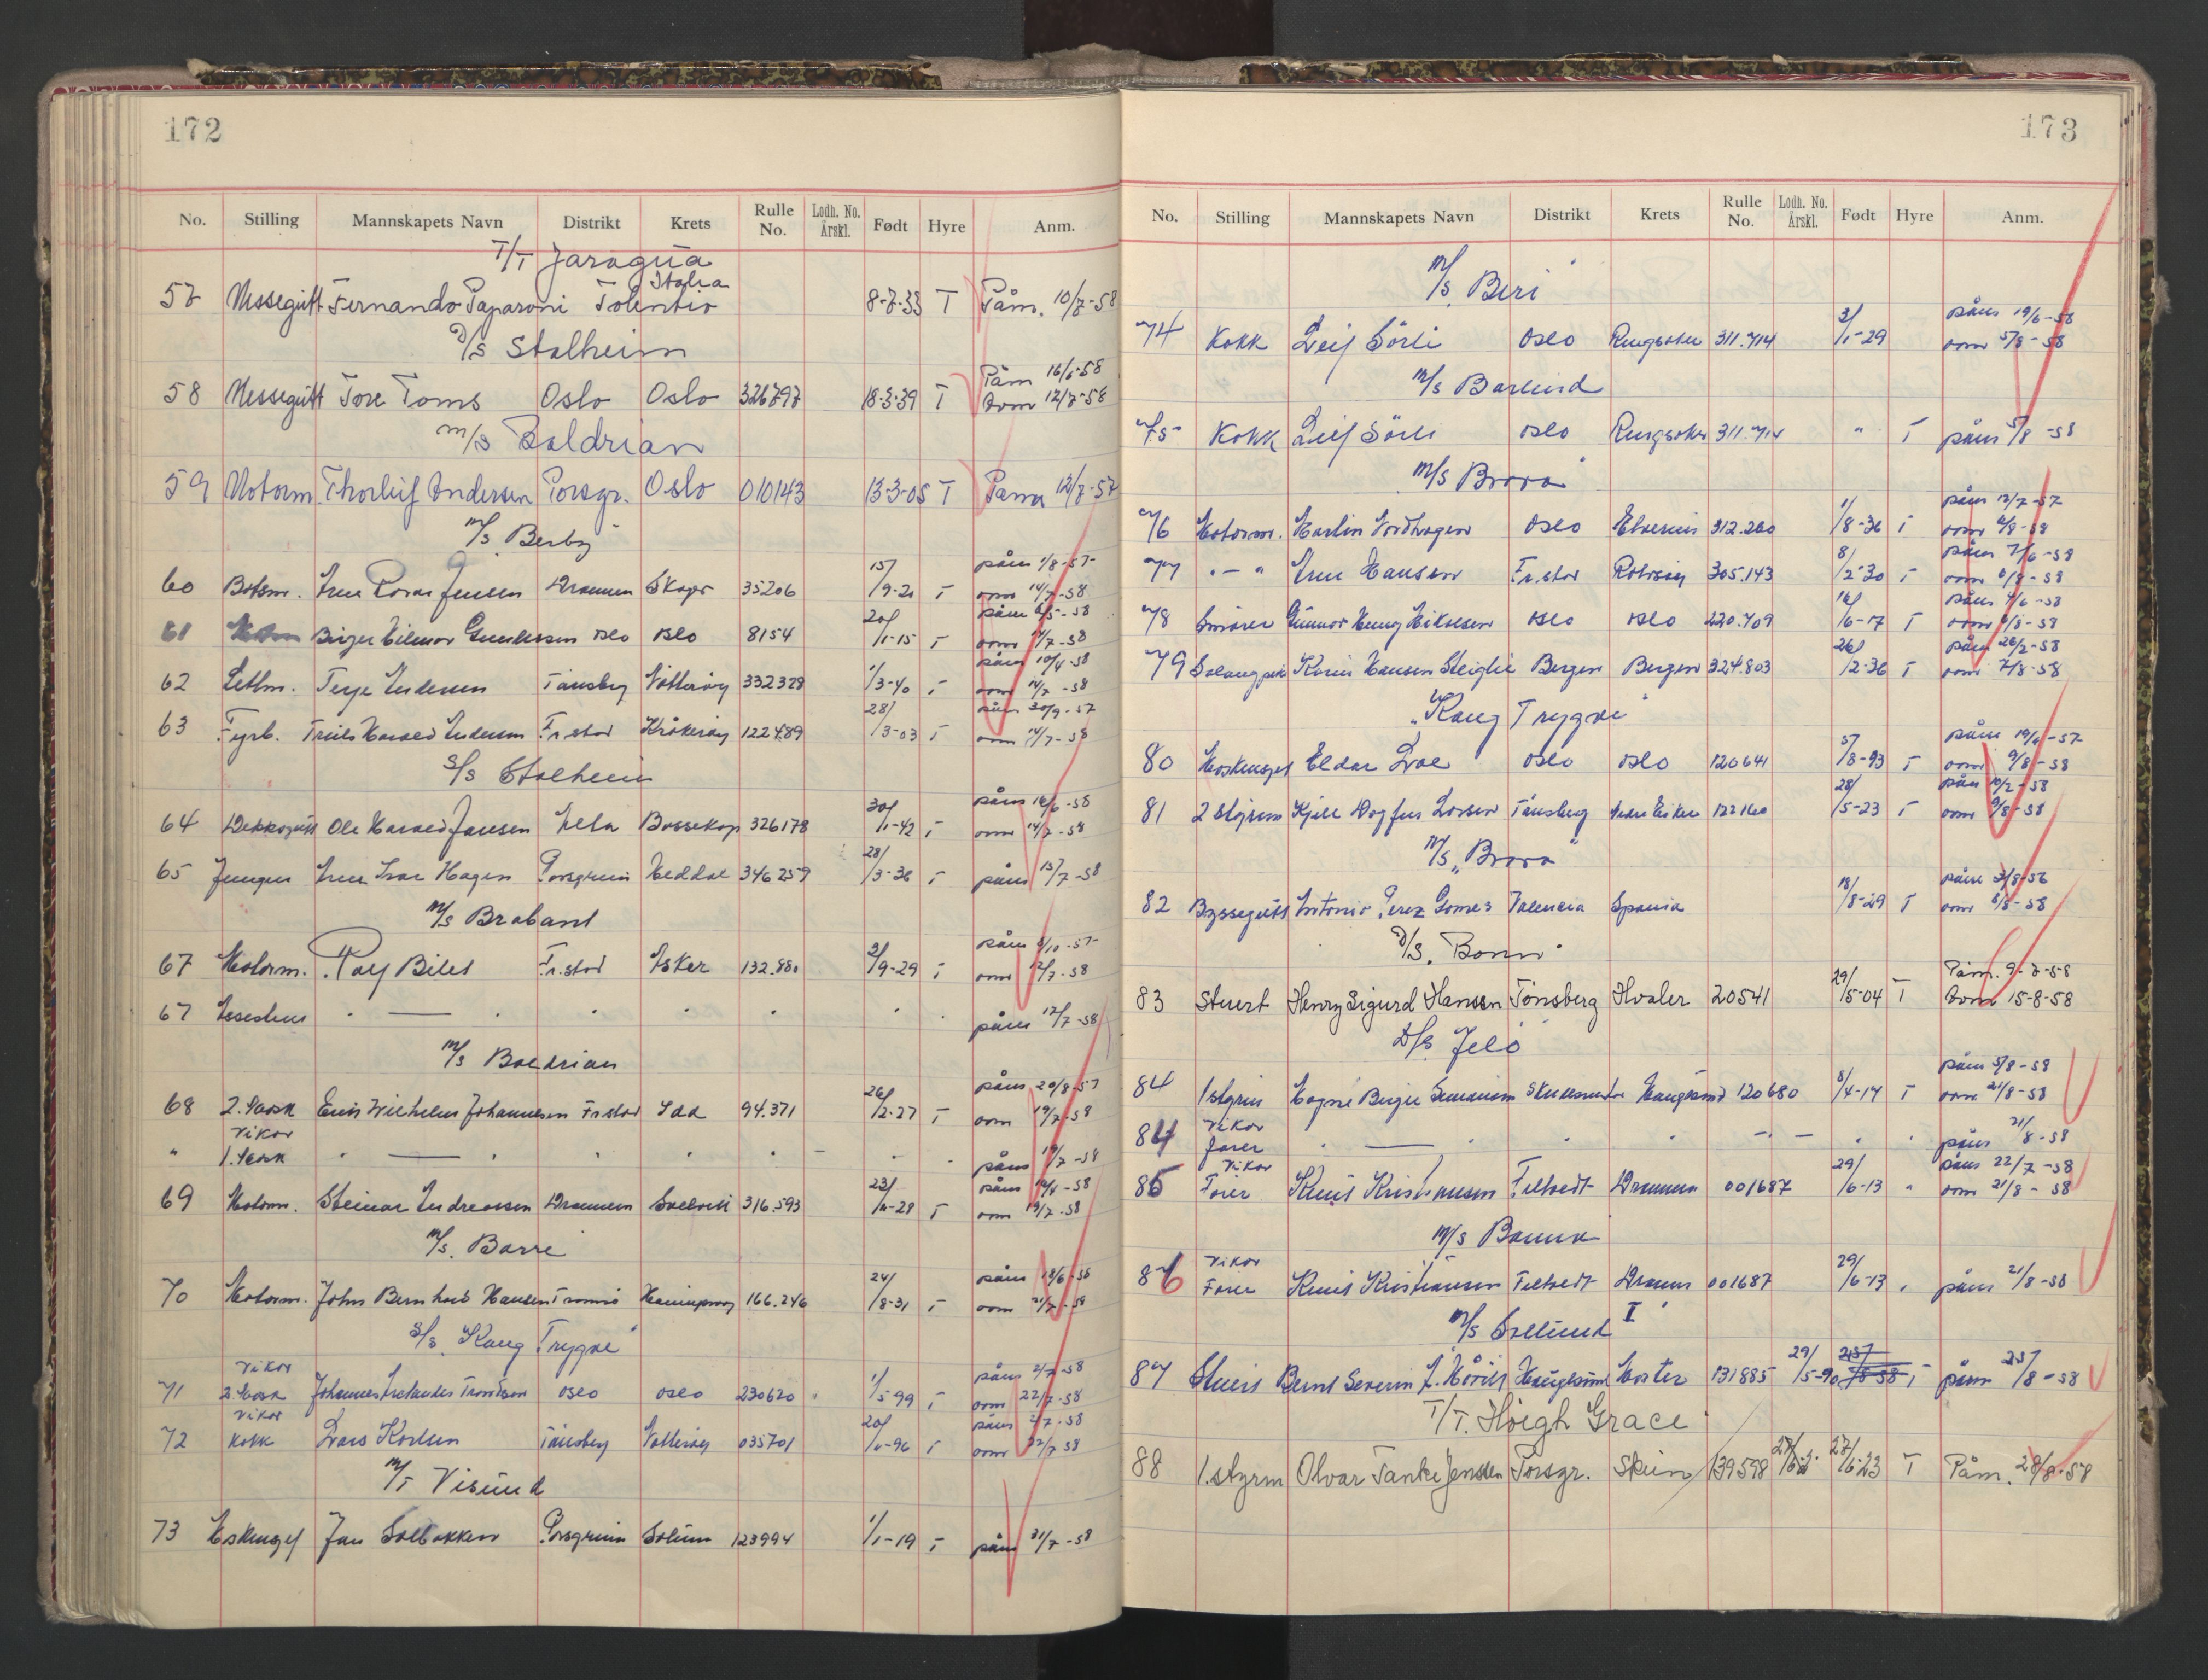 172
No. Stilling Mannskapets Navn Distrikt Krets Rulle No. Lodh. No. Årskl. Født Hyre Anm.
T/T Jaragua
Italia
57 Messegutt Fernando Paparoni Tolentio 8-7-33 T Påm. 10/7-58
D/S Stalheim
Påm 16/6-58
58 Messegutt Tore Toms Oslo Oslo 326797 18-3-39 T Avm 12/7-58
m/s Baldrian
59 Motorm. Thorleif Andersen Porsgr. Oslo 010143 13-3-05 T 12/8-57
M/S Berby
påm 1/8-57
60 Båtsm. Jensen Drammen 35206 15/9-21 T avm 14/7-58
påm 6/5-58
61 Birger Oslo Oslo 8154 20/1-15 T avm 14/7-58
påm 10/4-58
62 Lettm. Terje Andersen Tønsberg Nøtterøy 332328 1/3-40 T avm 14/7-58
påm 30/9-57
63 Fyrb. Andersen Fr.stad Kråkerøy 122489 28/3-03 T avm 14/7-58
S/S Stalheim
påm 16/6-58
64 Dekksgutt Ole Harald Jansen Alta Bossekop 326178 30/1-42 T avm 14/7-58
65 Jungm Hagen Porsgrunn Heddal 346259 28/3-36 T påm 15/7-58
M/S Brabant
påm 8/10-57
67 Motorm. Fr.stad Asker 132.880 2/9-29 T avm 12/7-58
67 " — " " " " " " påm 12/7-58
M/S Baldrian
påm 20/8-57
68 2. Wilhelm Johannessen Fr.stad Idd 94.371 26/2-27 T avm 19/7-58
Vikar
" 1. " — " " " " - " " påm 19/7-58
påm 19/4-58
69 Motorm. Steinar Andreassen Drammen Svelvik 316.593 23/ T avm 19/7-58
M/S. Barre
påm 18/6-58
70 Motorm. John Bernhard Hansen Tromsø 166.246 24/8-31 T avm 21/7-58
S/S. "Kong Trygve"
Vikar påm 2/7-58
71 2. Johannes Trondsen Oslo Oslo 230620 " 1/5-99 T avm 22/7-58
Vikar påm 2/7-58
72 Kokk Lars Karlsen Tønsberg Nøtterøy 035701 T avm 22/7-58
M/T Visund
73 Jan Solbakken Porsgrunn Solum 123994 1/1-19 T påm 31/7-58
173
No. Stilling Mannskapets Navn Distrikt Krets Rulle No. Lodh. No. Årskl. Født Hyre Anm.
M/S. Beri
påm 19/6-58
74 Kokk Leif Sörli Oslo Ringsaker 311.714 3/1-29 avm 5/8-58
M/S Barlind
75 Kokk Leif Sörli Oslo Ringsaker 311.714 " T påm 5/8-58
M/S Bravo
påm 12/7-57
76 Motorm. Martin Nordhagen Oslo Elverum 312.260 1/8-36 T avm 6/8-58
påm 7/6-58
77 " — " Hansen Fr.stad Rolvsøy 305.143 8/2-30 T avm 6/8-58
påm 4/6-58
78 Smører Gunnar Oslo Oslo 220.709 16/6-17 T avm 6/8-58
påm 26/2-58
79 Salongpike Karin Hansen Bergen Bergen 324.803 26/2-36 T avm 7/8-58
"Kong Trygve"
påm 19/6-57
80 Maskinsjef Eldar Oslo Oslo 120641 5/8-93 T avm 9/8-58
påm 10/2-58
81 2 styrm Kjell Dagfin Larsen Tønsberg Nedre Eiker 122160 28/5-23 T avm 9/8-58
M/S "Bravo"
påm 2/8-56
82 Byssegutt Antonio Perez Gomes Valencia Spania 18/8-29 T avm 6/8-58
D/S. Bonn
Påm. 9-7-58
83 Stuert Henry Sigurd Hansen Tönsberg Hvaler 20541 29/5-04 T Avm 15-8-58
D/S. Jelö
påm 5/8-58
84 1styrm Magne Birger Haugesund 120680 8/4-14 T avm 21/8-58
Vikar
84 Fører " — " " " — — " " påm 21/8-58
Vikar påm 22/7-58
85 Fører Knut Kristiansen Filtvedt Drammen 001687 29/6-13 " avm 21/8-58
M/S Banna
Vikar
86 Fører Knut Kristiansen Filtvedt Dramm 001687 29/6-13 " påm 21/8-58
M/S Sollund I
87 Stuert Bernt Severin J. Haugesund Moster 131885 29/5-90 T påm 25/8-58
T/T. Höegh Grace
88 1.styrm Olvar Tanke Jenssen Porsgr. Skien 139598 27/6-23 T Påm. 28/8-58